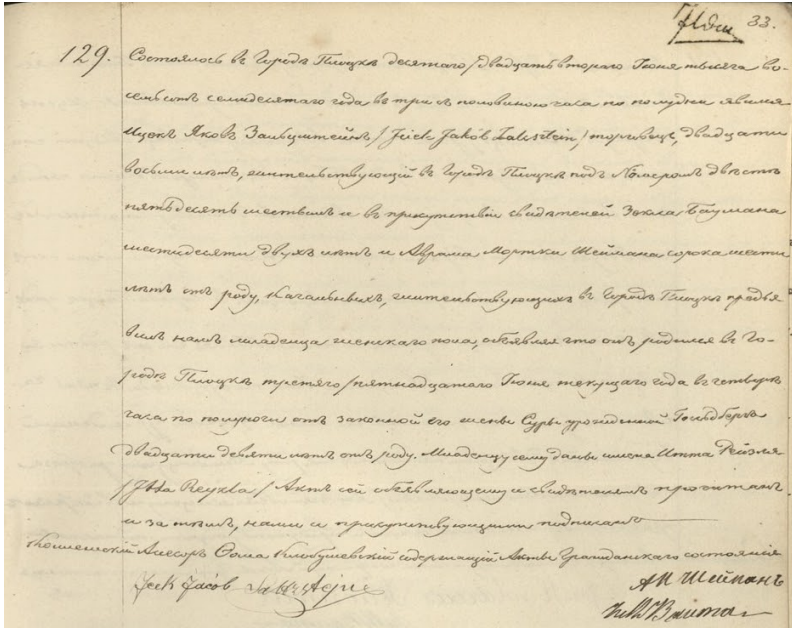 33.
129. Состоялось въ Городѣ Плоцкѣ десятаго/двадцать втораго Іюня тысяча во-
семьсотъ семидесятаго года въ три съ половиною часа по полудни явился
Ицекъ Яковъ Зальцштейнъ / Jcek Jakób Zalcstein / торговецъ, двадцати
восьми лѣтъ, жительствующій въ Городѣ Плоцкѣ подъ Номеромъ двѣсти
пятьдесятъ шестымъ и въ присутствіи свидѣтелей Зекла Баумана
шестидесяти двухъ лѣтъ и Аврама Мортки Шеймана сорока шести
лѣтъ отъ роду, Кагальныхъ, жительствующихъ въ Городѣ Плоцкѣ предъя-
вилъ намъ младенца женскаго пола, объявляя что онъ родился въ Го-
родѣ Плоцкѣ третяго/пятнадцатаго Іюня текущаго года въ четыре
часа по полуночи отъ законной его жены Суры урожденной Гольдбергъ
двадцати девяти лѣтъ отъ роду. Младенцу сему даны имена Итта Рейзля
/ Jtta Reyzla / Актъ сей объявляющему и свидѣтелямъ прочитанъ
и за тѣмъ, нами и присутствующими подписанъ
Асесоръ Ѳома содержащій Акты Гражданскаго состоянія
Jcek Jacob
АМ Шейманъ